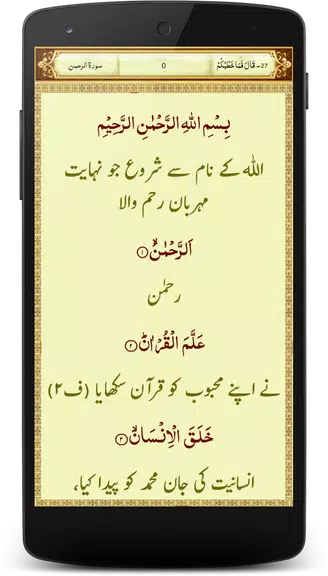 27- قَالَ فَمَا خَطْبُكُمْ 0 سورة الرحمن
بِسْمِ اللهِ الرَّحْمٰنِ الرَّحِيْمِ
اللہ کے نام سے شروع جو نہایت
مہربان رحم والا
اَلرَّحْمٰنُۙ﴿۱﴾
رحمٰن
عَلَّمَ الْقُرْاٰنَؕ﴿۲﴾
نے اپنے محبوب کو قرآن سکھایا (ف۲)
خَلَقَ الْاِنْسَانَۙ﴿۳﴾
انسانیت کی جان محمد کو پیدا کیا،